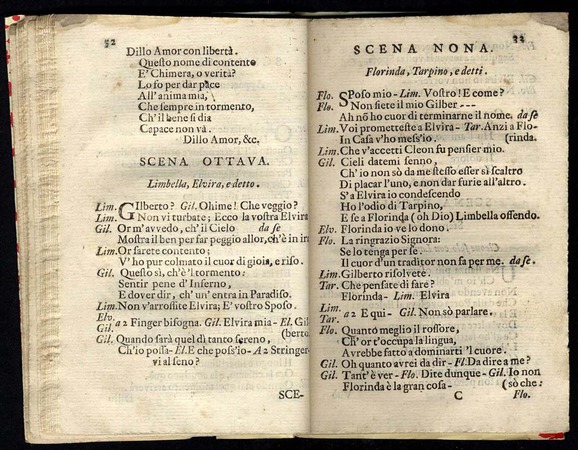 32
Dillo Amor con libertà.
Questo nome di contento
E' Chimera, o verità?
Lo so per dar pace
All'anima mia,
Che sempre in tormento,
Ch'il bene si dia
Capace non và.
Dillo Amor, &c.
SCENA OTTAVA.
Limbella, Elvira, e detto.
Lim. GIlberto? Gil. Ohime! Che veggio?
Lim. Non vi turbate; Ecco la vostra Elvira
Gil. Or m'avvedo, ch'il Cielo da se
Mostra il ben per far peggio allor, ch'è in ira
Lim. Or sarete contento;
V'ho pur colmato il cuor di gioia, e riso.
Gil. Questo sì, ch'è'l tormento:
Sentir pene d'Inferno,
E dover dir, ch'un'entra in Paradiso.
Lim. Non v'arrossite Elvira; E' vostro Sposo.
Elv.
Gil. a 2 Finger bisogna. Gil. Elvira mia - El. Gil
(berto
Gil. Quando sarà quel dì tanto sereno,
Ch'io possa - El. E che poss'io - A 2 Stringer-
vi al seno?
SCE-
33
SCENA NONA.
Florinda, Tarpino, e detti.
Flo. SPoso mio - Lim. Vostro! E come?
Flo. Non siete il mio Gilber ---
Ah nò ho cuor di terminarne il nome. da se
Lim. Voi prometteste a Elvira - Tar. Anzi a Flo-
In Casa v'ho mess'io. (rinda.
Lim. Che v'accetti Cleon fu pensier mio.
Gil. Cieli datemi senno,
Ch'io non sò da me stesso esser sì scaltro
Di placar l'uno, e non dar furie all'altro.
S'a Elvira io condescendo
Ho l'odio di Tarpino,
E se a Florinda (oh Dio) Limbella offendo.
Elv. Florinda io ve lo dono.
Flo. La ringrazio Signora:
Se lo tenga per se.
Il cuor d'un traditor non fa per me. da se.
Lim. Gilberto risolvete.
Tar. Che pensate di fare?
Florinda - Lim. Elvira
Lim.
Tar. a 2 E qui - Gil. Non sò parlare.
Flo. Quanto meglio il rossore,
Ch'or t'occupa la lingua,
Avrebbe fatto a dominarti 'l cuore.
Gil. Oh quanto avrei da dir - Fl. Da dire a me?
Gil. Tant'è ver - Flo. Dite dunque - Gil. Io non
Florinda è la gran cosa - (sò che:
C Flo.